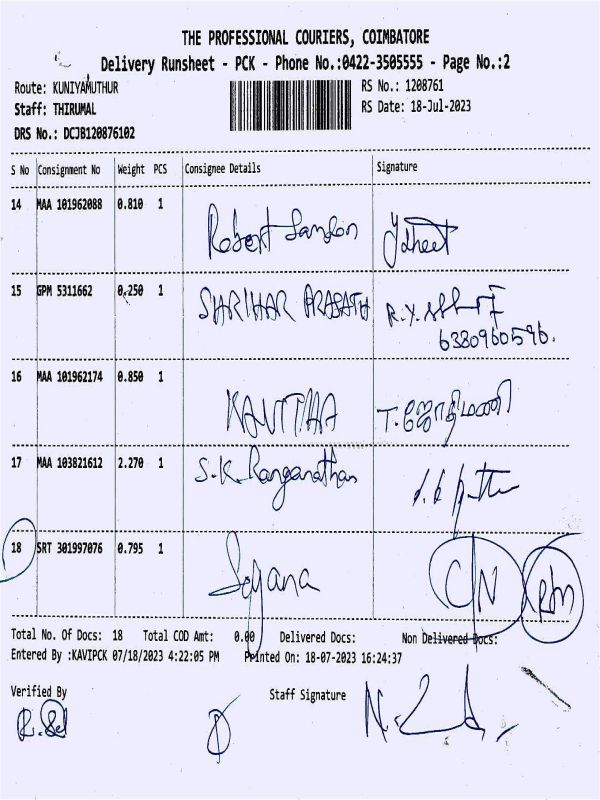 THE PROFESSIONAL COURIERS, COIMBATORE
Delivery Runsheet - PCK - Phone No.:0422-3505555 - Page No.:2
Route: KUNIYAMUTHUR RS No.: 1208761
Staff: THIRUMAL RS Date: 18-Jul-2023
DRS No.: DCJB120876102
S No Consignment No Weight PCS Consignee Details Signature
14 MAA 101962088 0.810 1
Robert
15 GPM 5311662 0.250 1
SHRIHAR PRASATH R.Y.
6380960596.
16 MAA 101962174 0.850 1
KAVITHA T.ஜோதிமணி
17 MAA 103821612 2.270 1
S.K. Ranganathan
18 SRT 301997076 0.795 1
C/N
Total No. Of Docs: 18 Total COD Amt: 0.00 Delivered Docs: Non Delivered Docs:
Entered By :KAVIPCK 07/18/2023 4:22:05 PM Printed On: 18-07-2023 16:24:37
Verified By Staff Signature